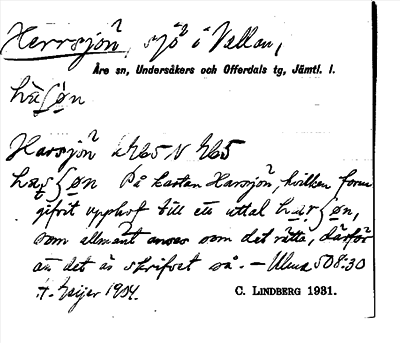 Herrsjön, sjö i Vallan,
Åre sn, Undersåkers och Offerdals tg, Jämtl. l.
Harsjön
på kartan Harsjön, hvilken form
gifvit upphof till ett uttal
som allmänt anses som det rätta, därför
att det är skrifvet så. – Ulma 508:30
H. Geijer 1904. C. LINDBERG 1931.